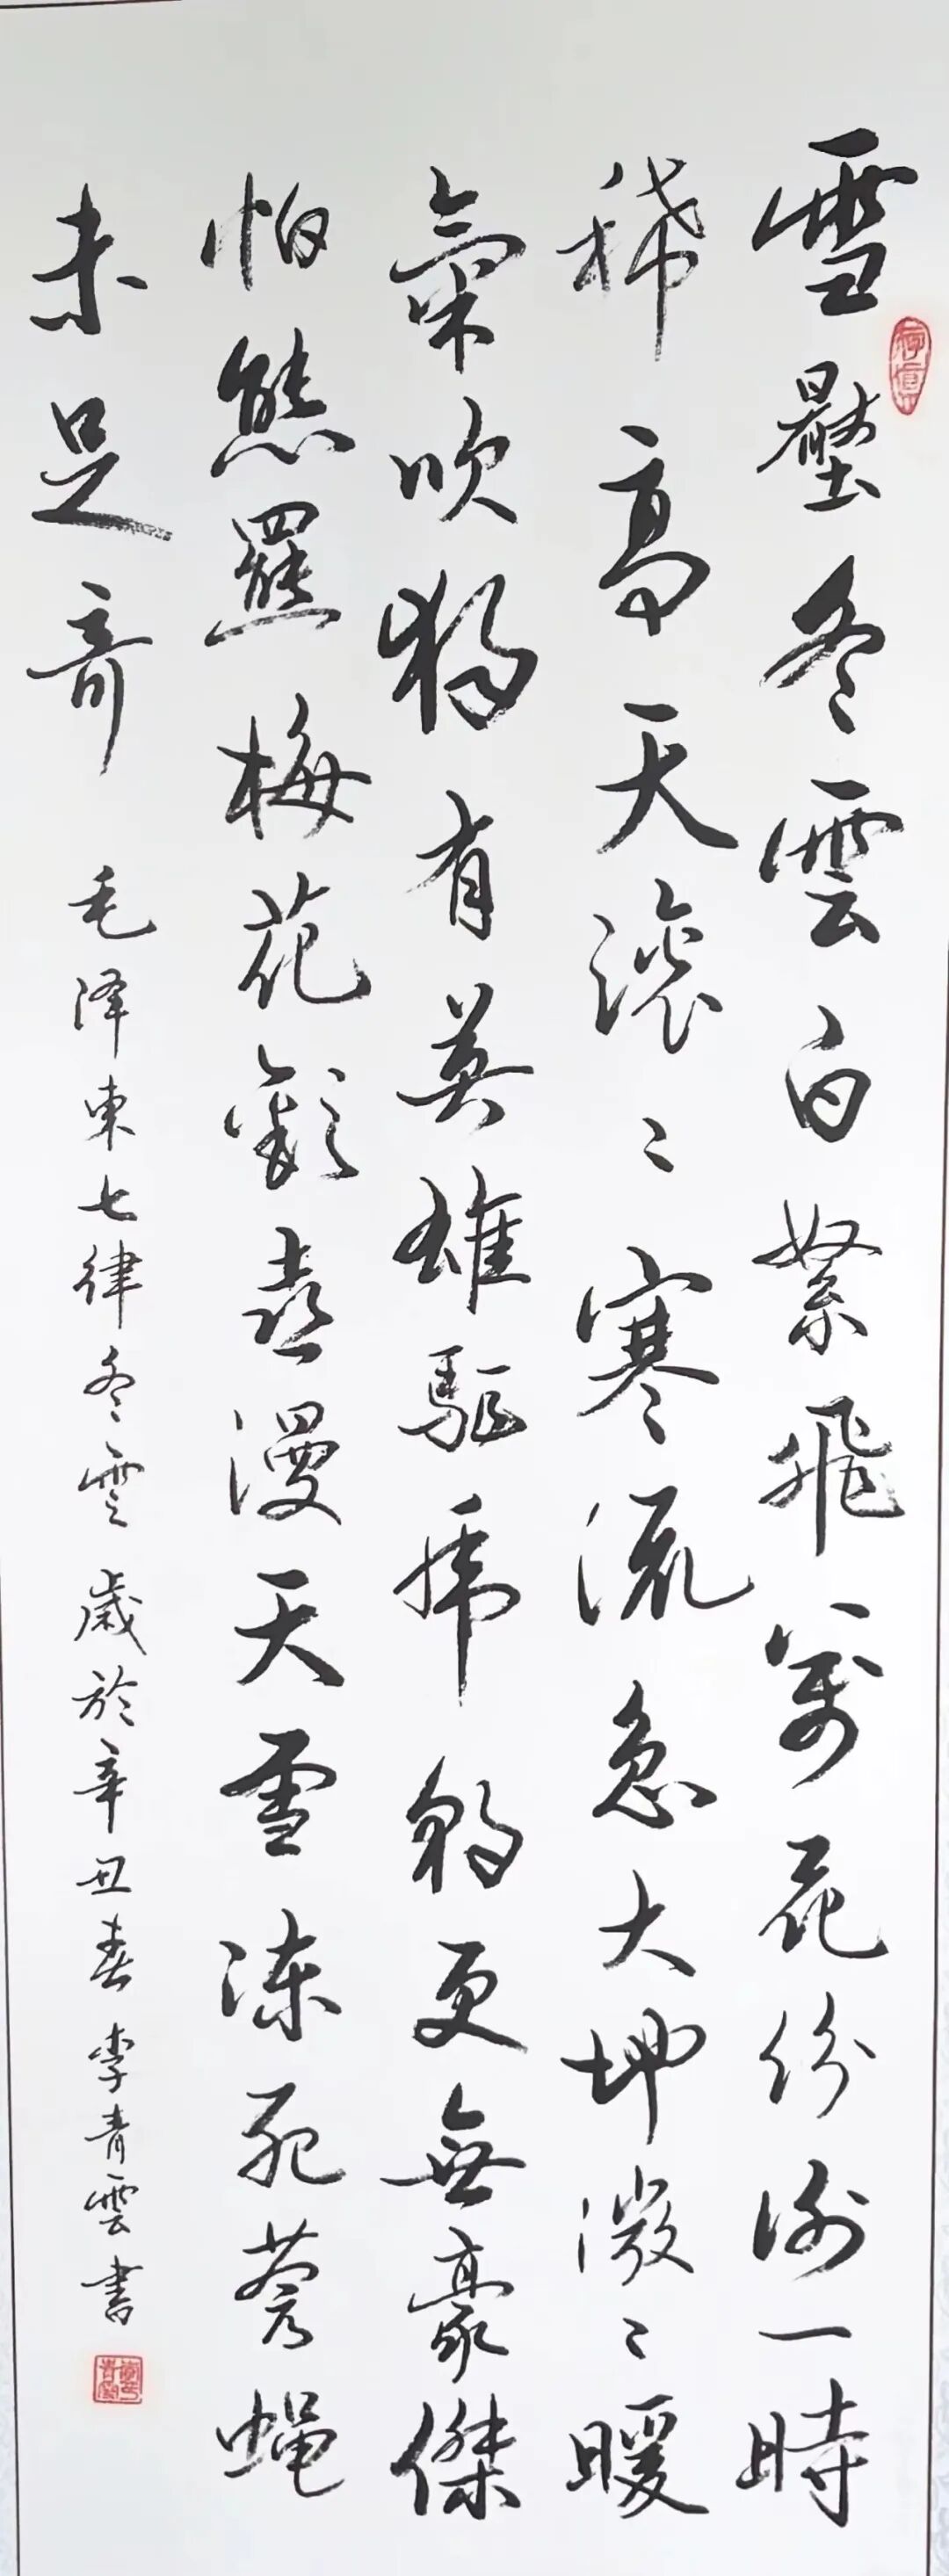 雪壓冬雲白絮飛萬花紛謝一時
稀高天滚々寒流急大地微々暖
氣吹獨有英雄驅虎豹更無豪傑
怕熊羆梅花歡喜漫天雪凍死蒼蝇
未足奇 毛泽東七律冬雲 歲於辛丑春 李青雲書